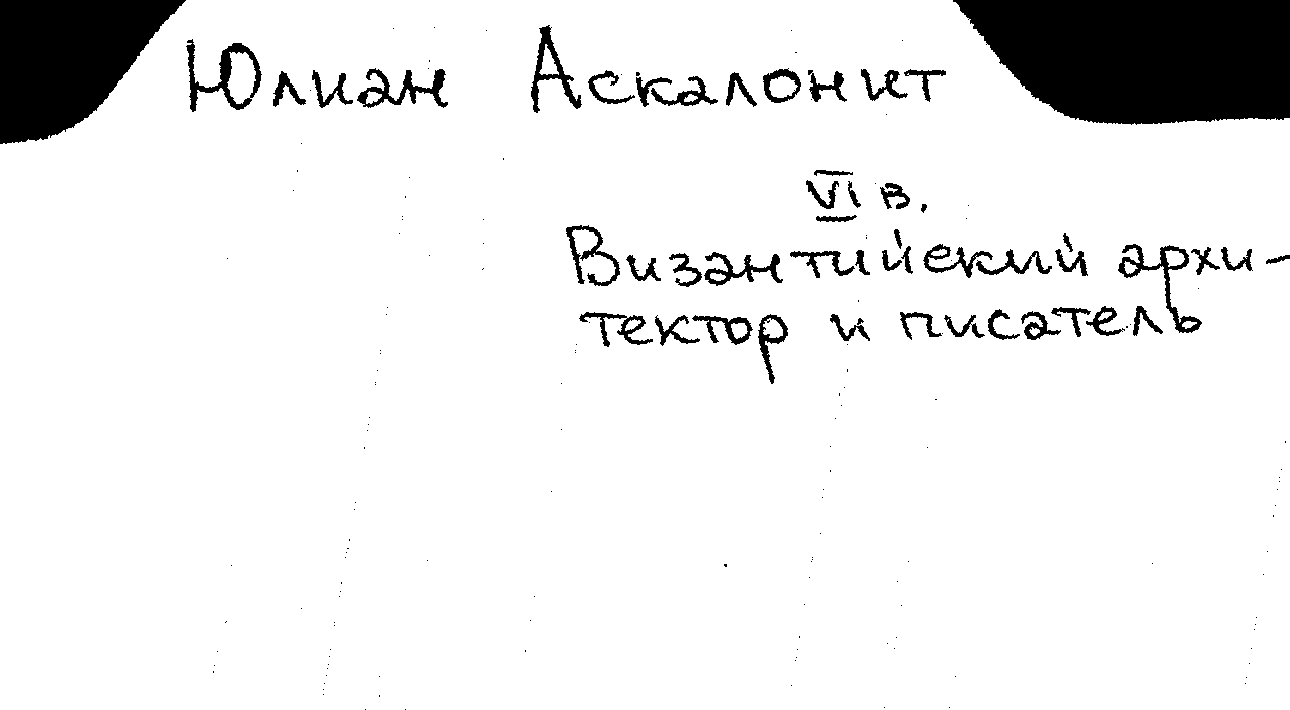 Юлиан Аскалонит
VI в.
Византийский архи-
тектор и писатель